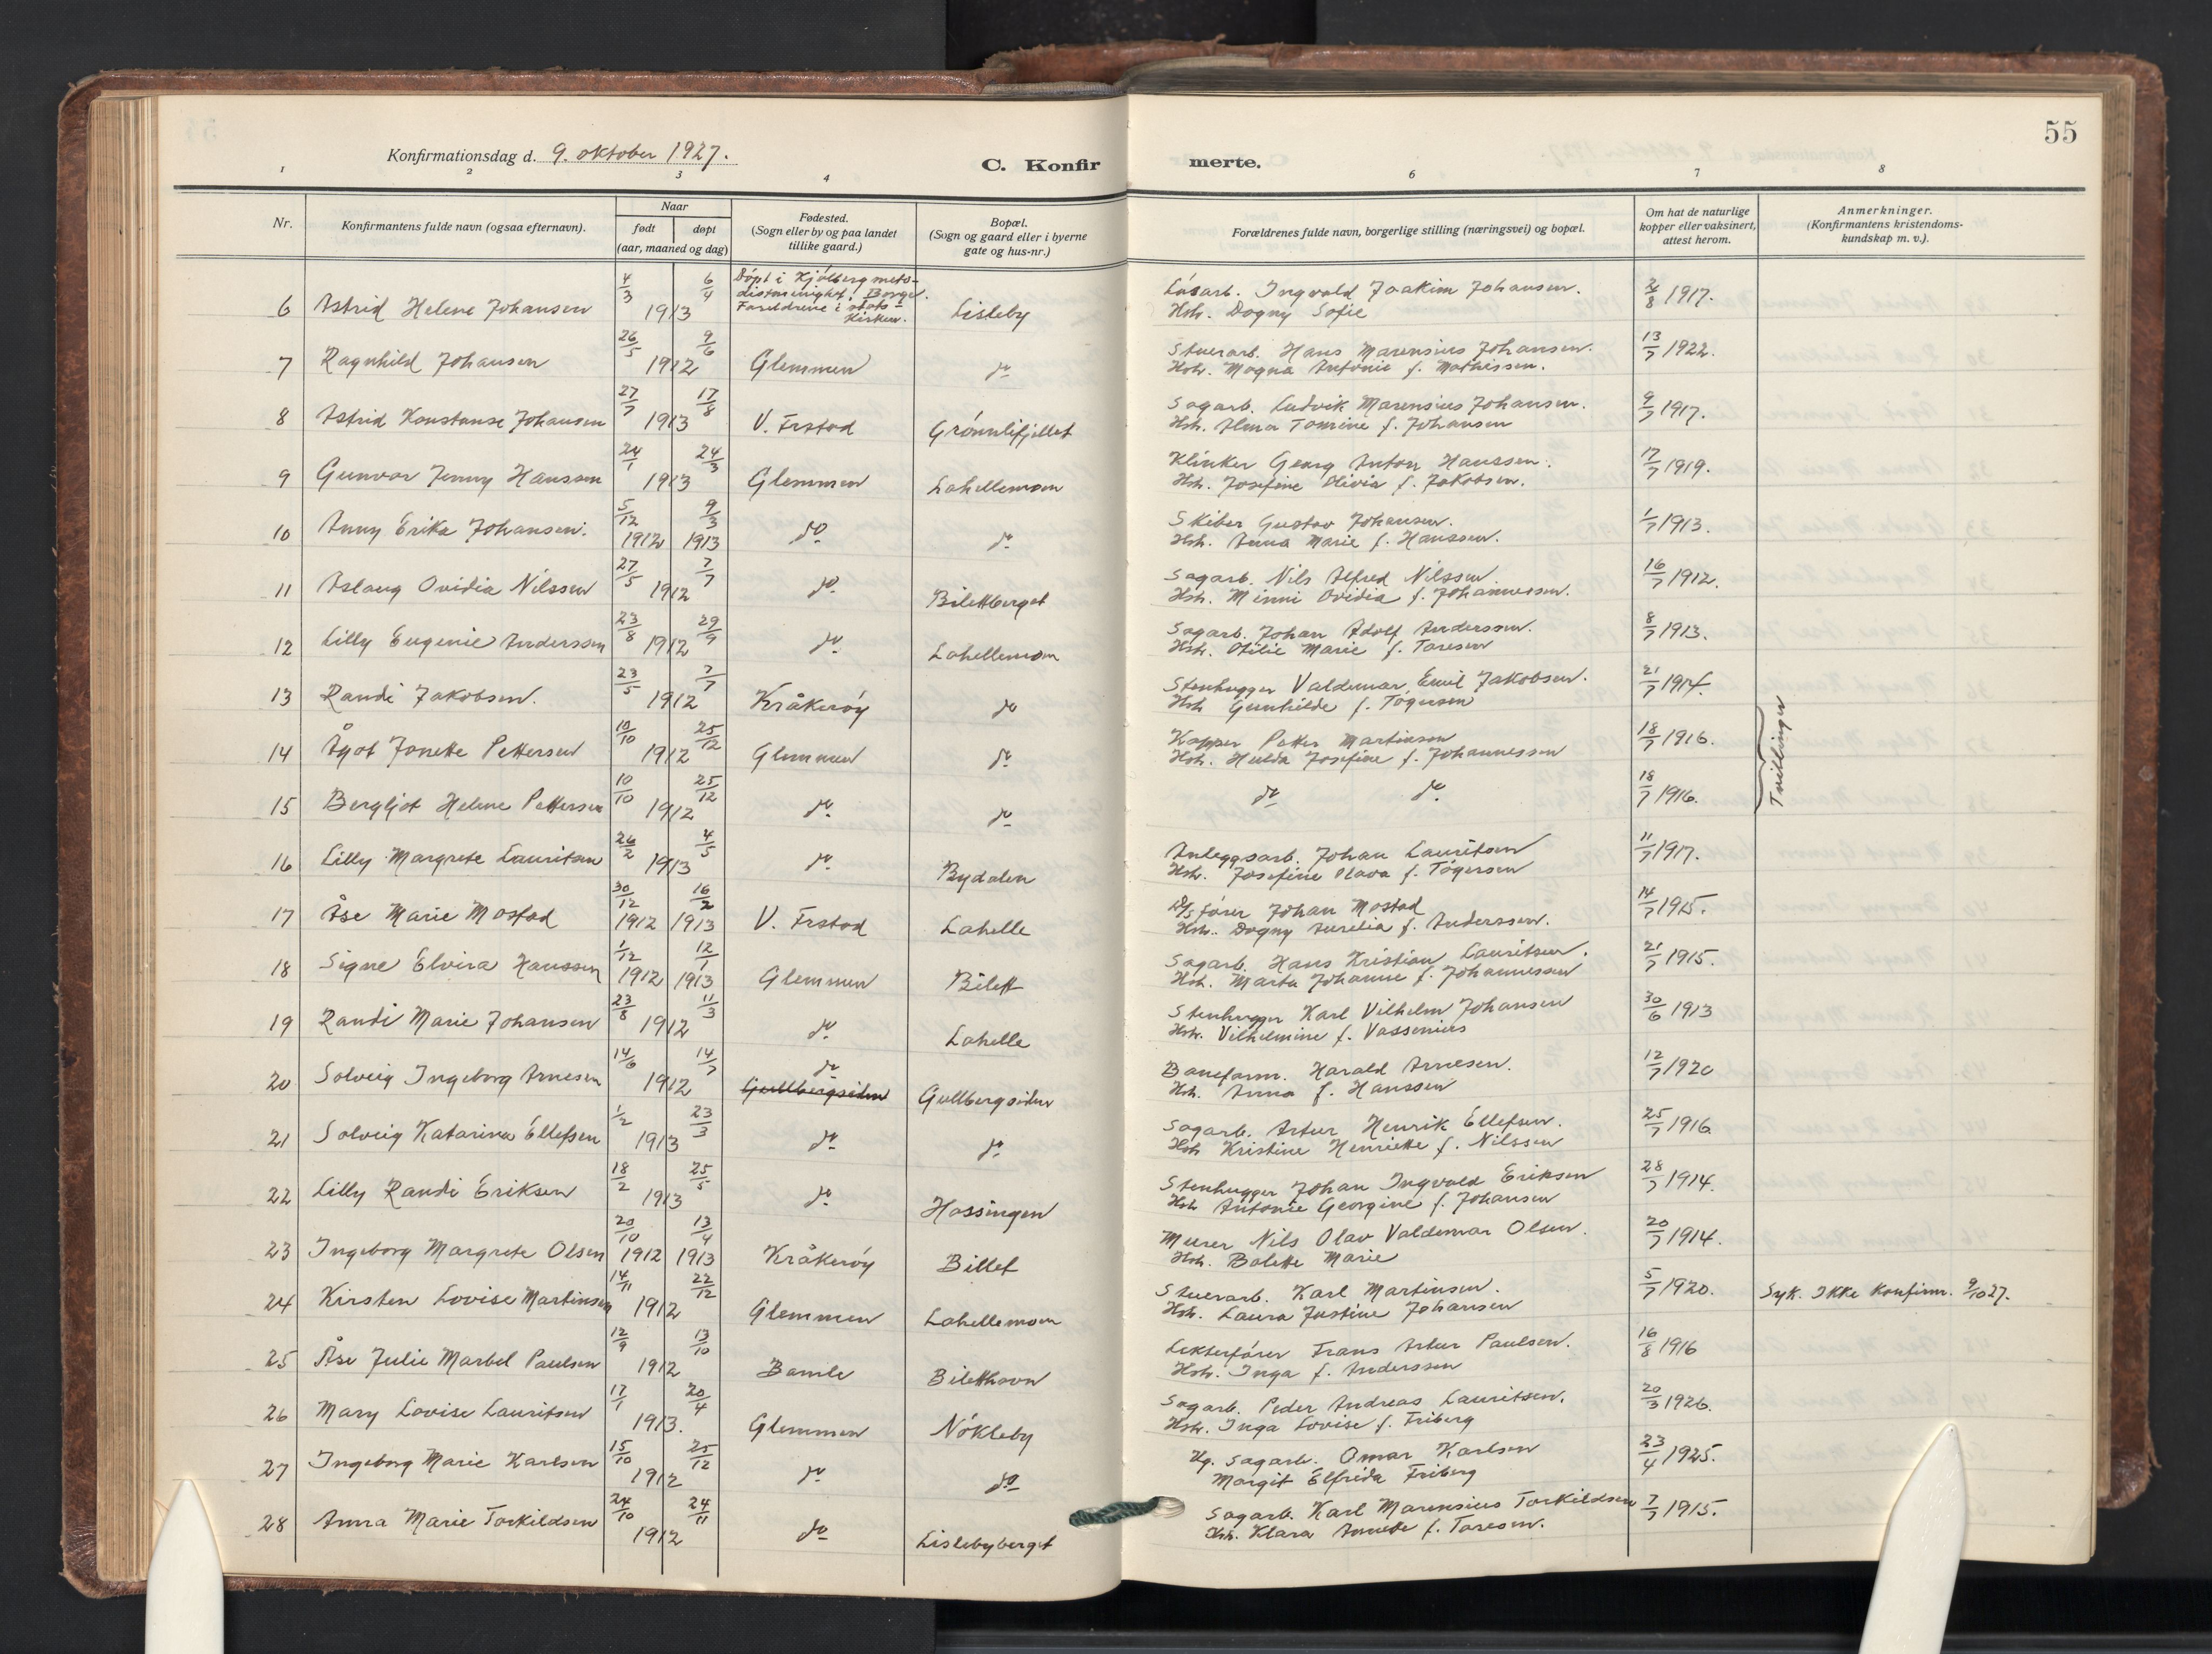 55
Konfirmationsdag d. 9. oktober 1927.
C. Konfir merte.
1 2 3 4 6 7 8
Nr.
Konfirmantens fulde navn (ogsaa efternavn).
Naar
født døpt
(aar, maaned og dag)
Fødested.
(Sogn eller by og paa landet
tillike gaard.)
Bopæl.
(Sogn og gaard eller i byerne
gate og hus-nr.)
Forældrenes fulde navn, borgerlige stilling (næringsvei) og bopæl.
Om hat de naturlige
kopper eller vaksinert,
attest herom.
Anmerkninger.
(Konfirmantens kristendoms-
kundskap m. v.).
6 Astrid Helene Johansen 4/3 6/4 1913 Døpt i Kjølberg Borge. Foreldrene i stats-kirken. Lisleby
Løsarb. Ingvald Joakim Johansen. 1917.
Hstr. Dagny Sofie
7 Ragnhild Johansen 26/5 9/6 1912 Glemmen do
Stuerarb. Hans Marensius Johansen. 13/7 1922.
Hstr. Magna Antonie f. Mathissen.
8 Astrid Konstanse Johansen 27/7 17/8 1913 V. Frstad Grønnlifjellet
Sagarb. Ludvik Marensius Johansen. 9/7 1917.
Hstr. Alma Tomine f. Johansen
9 Gunvor Jenny Hanssen 24/1 24/3 1913 Glemmen Lahellemoen
Klinker Georg Anton Hanssen. 17/7 1919.
Hstr. Josefine Olivia f. Jakobsen.
10 Anny Erika Johansen. 5/12 1912 9/3 1913 do do
Skiber Gustav Johansen. 1/7 1913.
Hstr. Anna Marie f. Hanssen.
11 Aslaug Ovidia Nilssen 27/5 7/7 1912 do Bilettberget
Sagarb. Nils Alfred Nilssen. 16/7 1912.
Hstr. Minni Ovidia f. Johannessen.
12 Lilly Eugenie Anderssen 23/8 29/9 1912 do Lahellemoen
Sagarb. Johan Adolf Anderssen. 8/7 1913.
Hstr. Otilie Marie f. Taresen
13 Randi Jakobsen. 23/5 7/7 1912 Kråkerøy do
Stenhugger Valdemar Emil Jakobsen. 21/7 1914.
Hstr Gunhilde f. Tøgersen
14 Ågot Jonette Pettersen 10/10 25/12 1912 Glemmen do
Kopper Petter Martinsen 18/7 1916.
Hstr. Hulda Josefine f. Johannessen
15 Bergljot Helene Pettersen 10/10 25/12 1912 do do
do do 18/7 1916.
Tvillinger
16 Lilly Margrete Lauritsen 26/2 4/5 1913 do Bydalen
Anleggsarb. Johan Lauritsen 11/7 1917.
Hstr. Josefine Olava f. Tøgersen
17 Åse Marie Mostad 30/12 1912 16/2 1913 V. Frstad Lahelle
D/S fører Johan Mostad 14/7 1915.
Hstr. Dagny Aurelia f. Anderssen.
18 Signe Elvira Hanssen 1/12 1912 12/1 1913 Glemmen Bilett
Sagarb. Hans Kristian Lauritsen. 21/7 1915.
Hstr. Marta Johanne f. Johannessen
19 Randi Marie Johansen 23/8 11/3 1912 do Lahelle
Stenhugger Karl Vilhelm Johansen 30/6 1913
Hstr. Vilhelmine f. Vassenius
20 Solveig Ingeborg Arnesen 14/6 14/7 1912 do Gullbergsiden Gullbergsiden
Baneform. Harald Arnesen. 12/7 1920
Hstr. Anna f. Hanssen
21 Solveig Katarina Ellefsen 1/2 23/3 1913 do do
Sagarb. Artur Henrik Ellefsen. 25/7 1916
Hstr Kristine Henriette f. Nilssen
22 Lilly Randi Eriksen 18/2 25/5 1913 do Hassingen
Stenhugger Johan Ingvald Eriksen 28/7 1914.
Hstr Antonie Georgine f. Johansen
23 Ingeborg Margrete Olsen 20/10 1912 13/4 1913 Kråkerøy Billet
Murer Nils Olav Valdemar Olsen. 20/7 1914.
Hstr. Bolette Marie
24 Kirsten Lovise Martinsen 14/11 22/12 1912 Glemmen Lahellemoen
Stuerarb. Karl Martinsen. 5/7 1920. Syk. Ikke konfirm. 9/10 27.
Hstr. Laura Justine Johansen
25 Åse Julie Marbel Paulsen 12/9 13/10 1912 Bamle Biletthavn
Lekterfører Frans Artur Paulsen. 16/8 1916
Hstr. Inga f. Anderssen
26 Mary Lovise Lauritsen 17/1 20/4 1913. Glemmen Nøkleby
Sagarb. Peder Andreas Lauritsen. 20/3 1926.
Hstr. Inga Lovise f. Friberg
27 Ingeborg Marie Karlsen 15/10 25/12 1912 do do
Ug. Sagarb. Omar Karlsen 23/4 1925.
Margit Elfrida Friberg
28 Anna Marie Torkildsen 24/10 24/11 1912 do Lislebyberget
Sagarb. Karl Marensius Torkildsen 7/7 1915.
Hstr. Klara Annette f. Taresen.